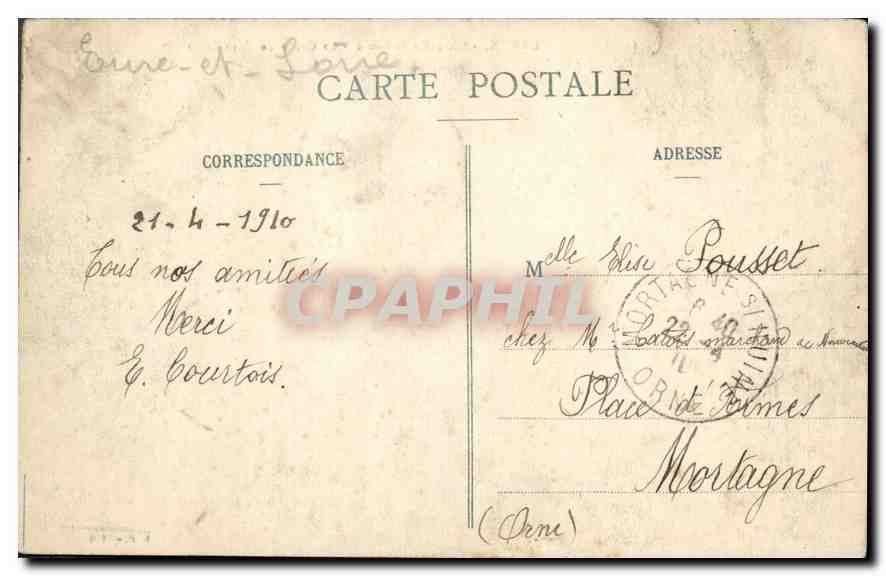 Eure-et-Loire.
CARTE POSTALE
CORRESPONDANCE
21-4-1910
Tous nos amitiés
Merci
E. Courtois.
ADRESSE
Melle Elise Pousset.
chez Mr marchand de
Place d'Armes
Mortagne
(Orne)
MORTAGNE S/ HUINE
22
ORNE
CPAPHIL